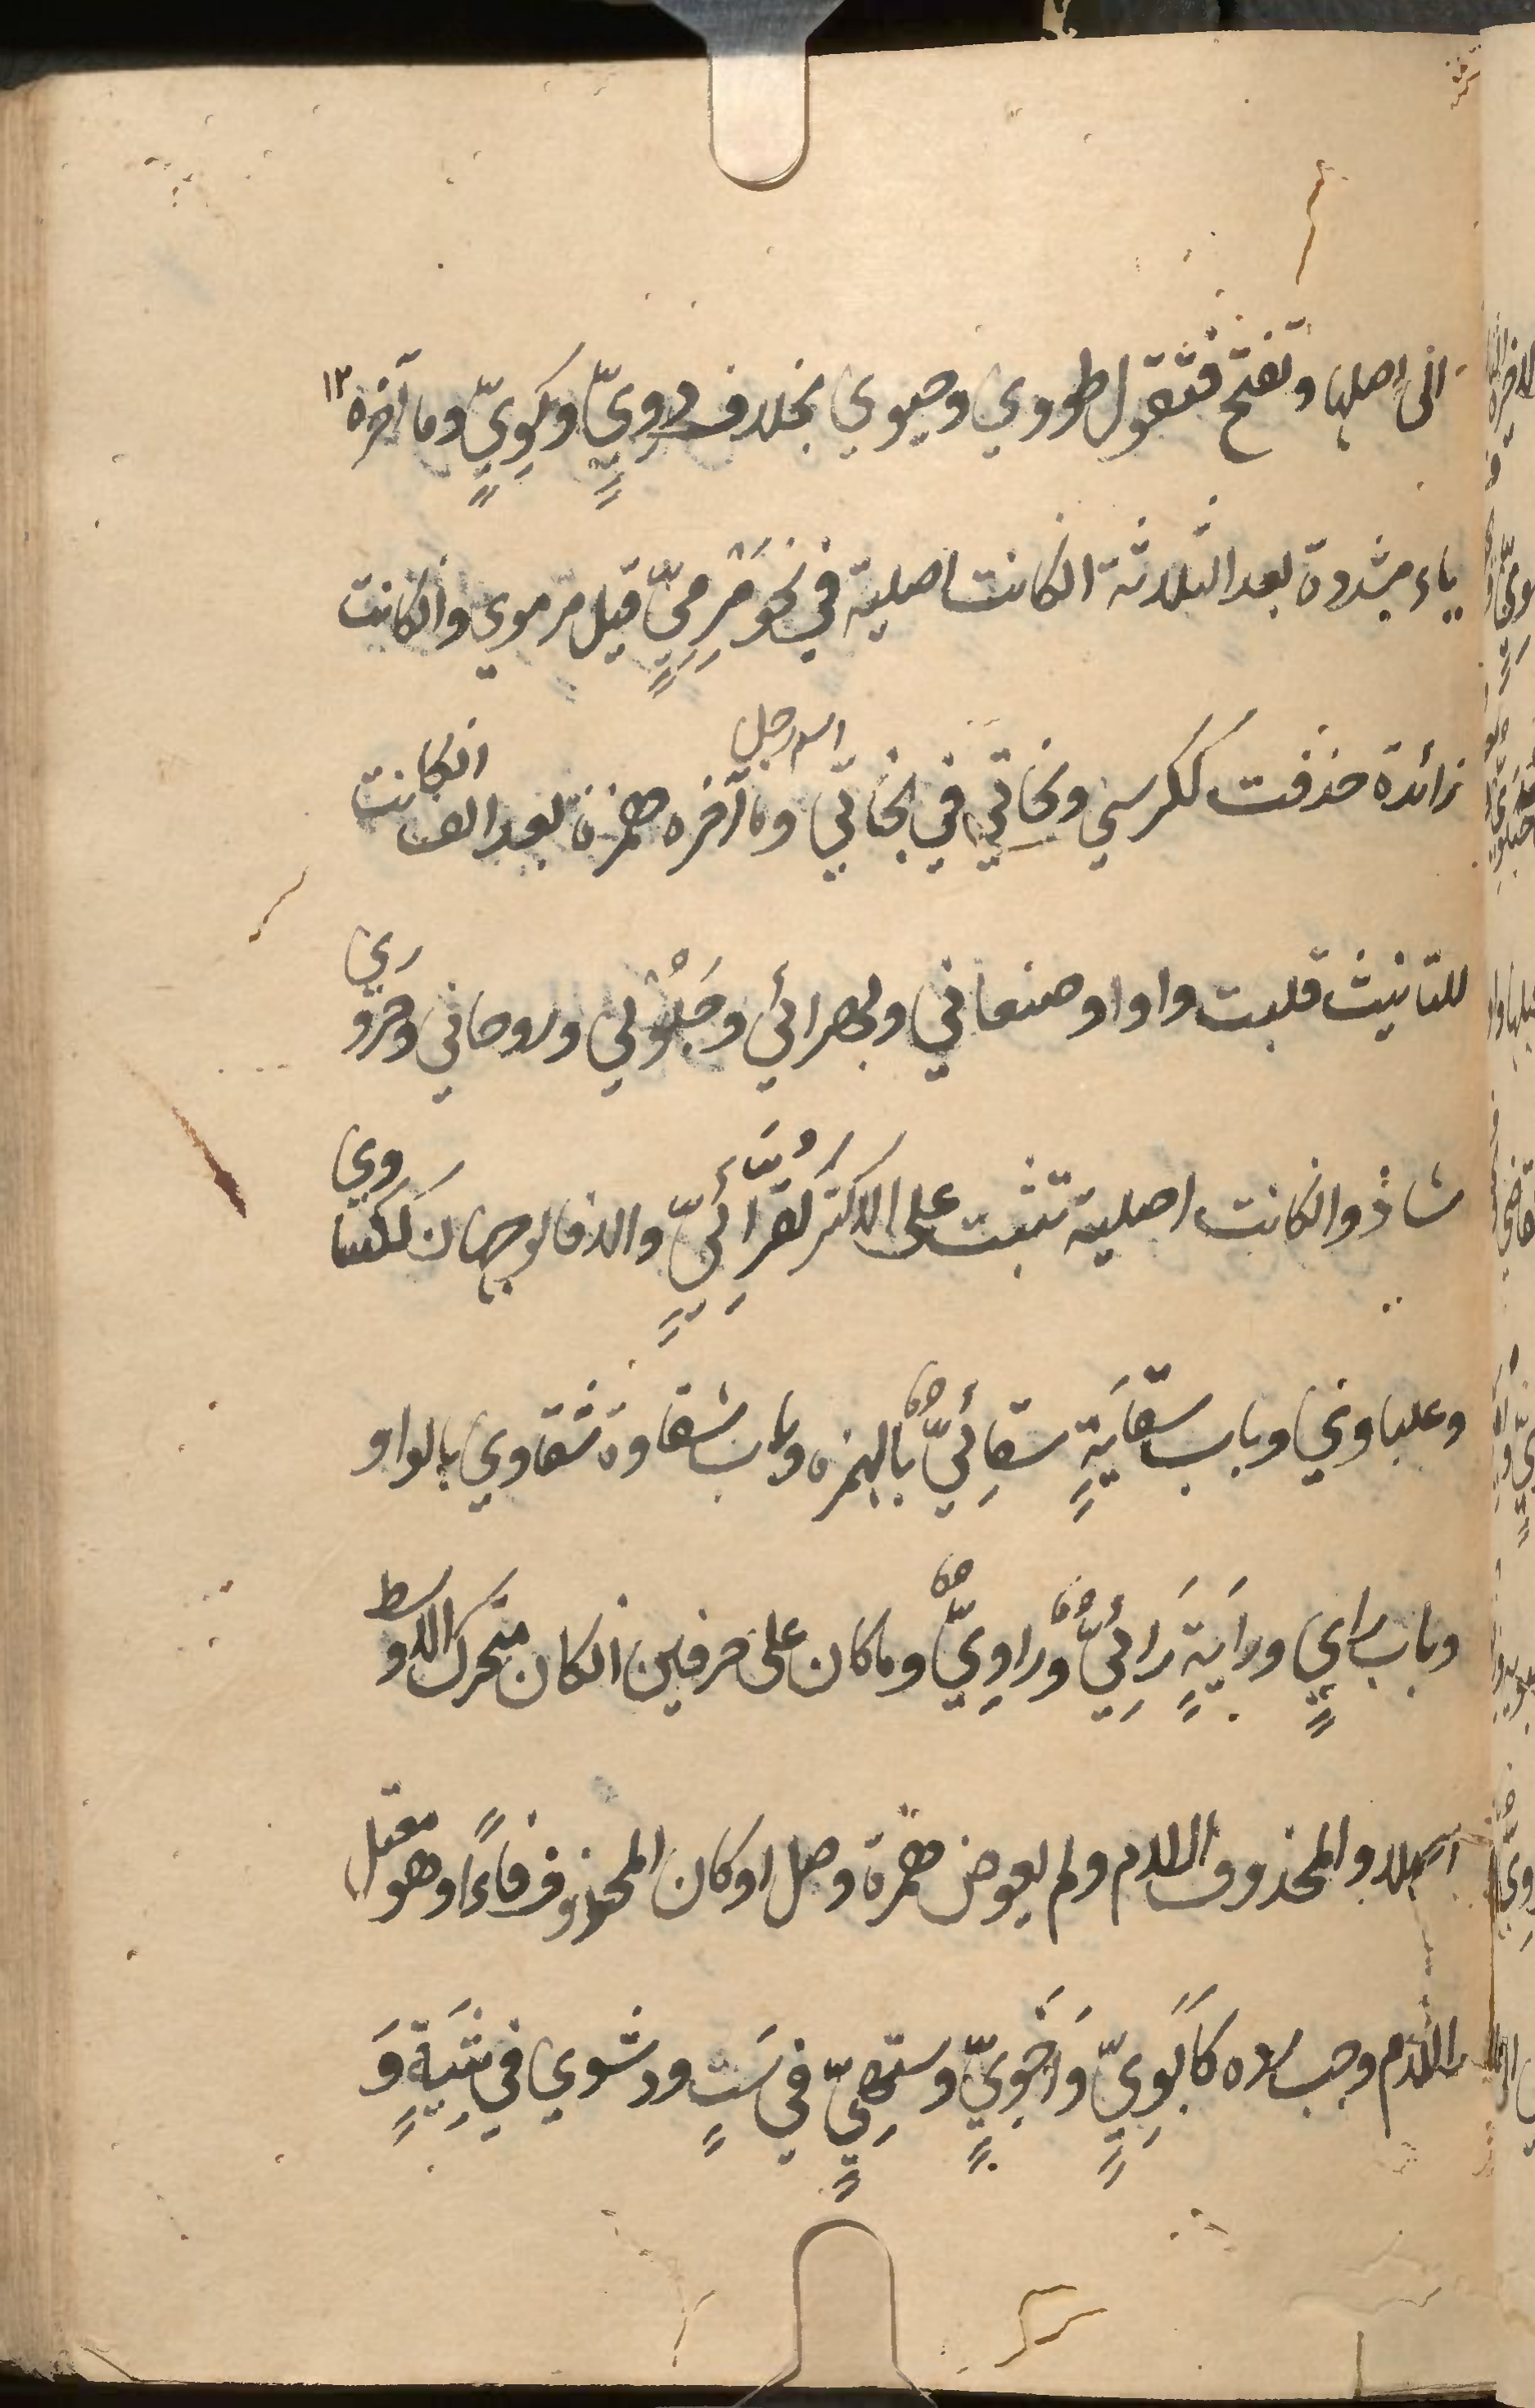 الى اصلها وتفتح فتقول طووي وحيوي بخلاف دَوِّيٍّ وكَوِّيٍّ وما آخره ١٢
ياء مشددة بعد الثلاثة انكانت اصلية في نحو مَرْمِيٍّ قيل مرموي وانكانت
زائدة حذفت ككرسي وبخاتي في بخاتي اسم رجل وما آخره همزة بعد الف انكانت
للتانيث قلبت واوا وصنعاني وبهرائي وجَلُوْلي وروحاني وحروري
شاذ وانكانت اصلية تثبت على الاكثر كقُرَّائِيٍّ والا فالوجهان ككساوي
وعلباوي وباب سقَايَةٍ سقائِيٌّ بالهمزه وباب شقاوة شقاوي بالواو
وباب رايٍ ورايَةٍ رَائِيٌّ وراوِيٌّ وما كان على حرفين انكان متحرك الاوسط
اصلا والمحذوف اللام ولم يعوض همزة وصل او كان المحذوف فاءً وهو معتل
اللام وجب رده كاَبَوِيٍّ وَاَخَوِيٍّ وستهِيٍّ في سَتٍ ووشوي في شِيَةٍ وَ